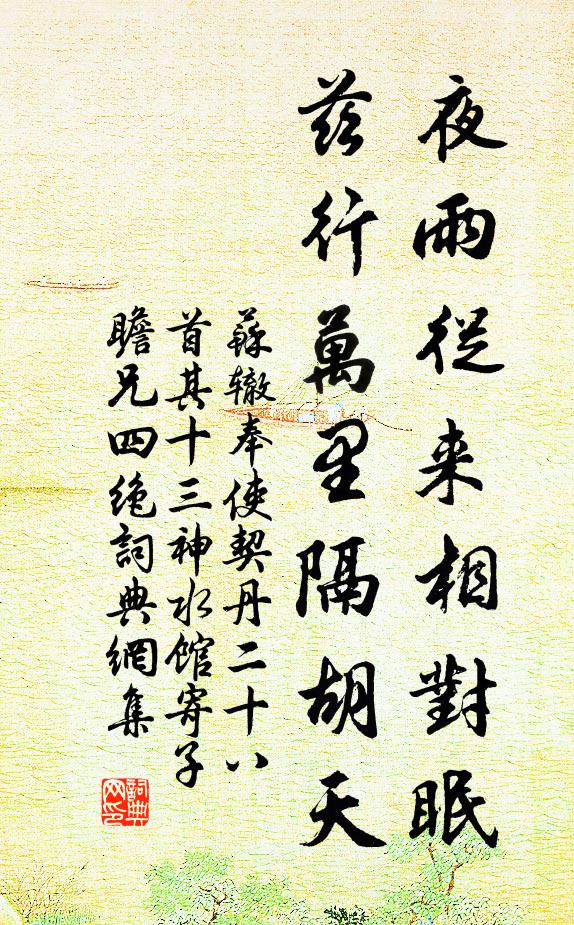 夜雨從来相對眠
茲行萬里隔胡天
蘇辙奉使契丹二十八
首其十三神水館寄子
瞻兄四絶詞典網集
詞典
网印